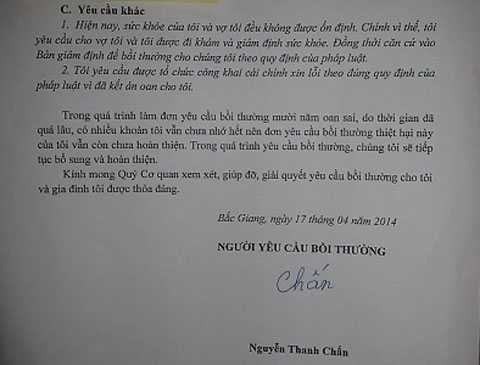 C. Yêu cầu khác
1. Hiện nay, sức khỏe của tôi và vợ tôi đều không được ổn định. Chính vì thế, tôi
yêu cầu cho vợ tôi và tôi được đi khám và giám định sức khỏe. Đồng thời căn cứ vào
Bản giám định để bồi thường cho chúng tôi theo quy định của pháp luật.
2. Tôi yêu cầu được tổ chức công khai cải chính xin lỗi theo đúng quy định của
pháp luật vì đã kết án oan cho tôi.
Trong quá trình làm đơn yêu cầu bồi thường mười năm oan sai, do thời gian đã
quá lâu, có nhiều khoản tôi vẫn chưa nhớ hết nên đơn yêu cầu bồi thường thiệt hại này
của tôi vẫn còn chưa hoàn thiện. Trong quá trình yêu cầu bồi thường, chúng tôi sẽ tiếp
tục bổ sung và hoàn thiện.
Kính mong Quý Cơ quan xem xét, giúp đỡ, giải quyết yêu cầu bồi thường cho tôi
và gia đình tôi được thỏa đáng.
Bắc Giang, ngày 17 tháng 04 năm 2014
NGƯỜI YÊU CẦU BỒI THƯỜNG
Chấn
Nguyễn Thanh Chấn